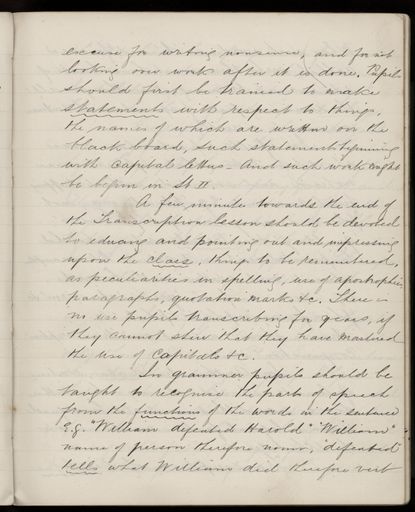 excuse for writing nonsense, and for not
looking over work after it is done. Pupils
should first be trained to make
statements with respect to things,
the names of which are written on the
black board, such statements beginning
with capital letters – And such work ought
to be begun in St II
A few minutes towards the end of
the Transcription lesson should be devoted
to educing and pointing out and impressing
upon the class, things to be remembered,
as peculiarities in spelling, use of apostrophes
paragraphs, quotation marks &c. There is
no use pupils transcribing for years, if
they cannot shew that they have mastered
the use of Capitals &c.
In grammer pupils should be
taught to recognise the parts of speech
from the function of the words in the sentence
E.g. "William defeated Harold" "William"
name of person therefore noun, "defeated"
tells what William did therefore verb